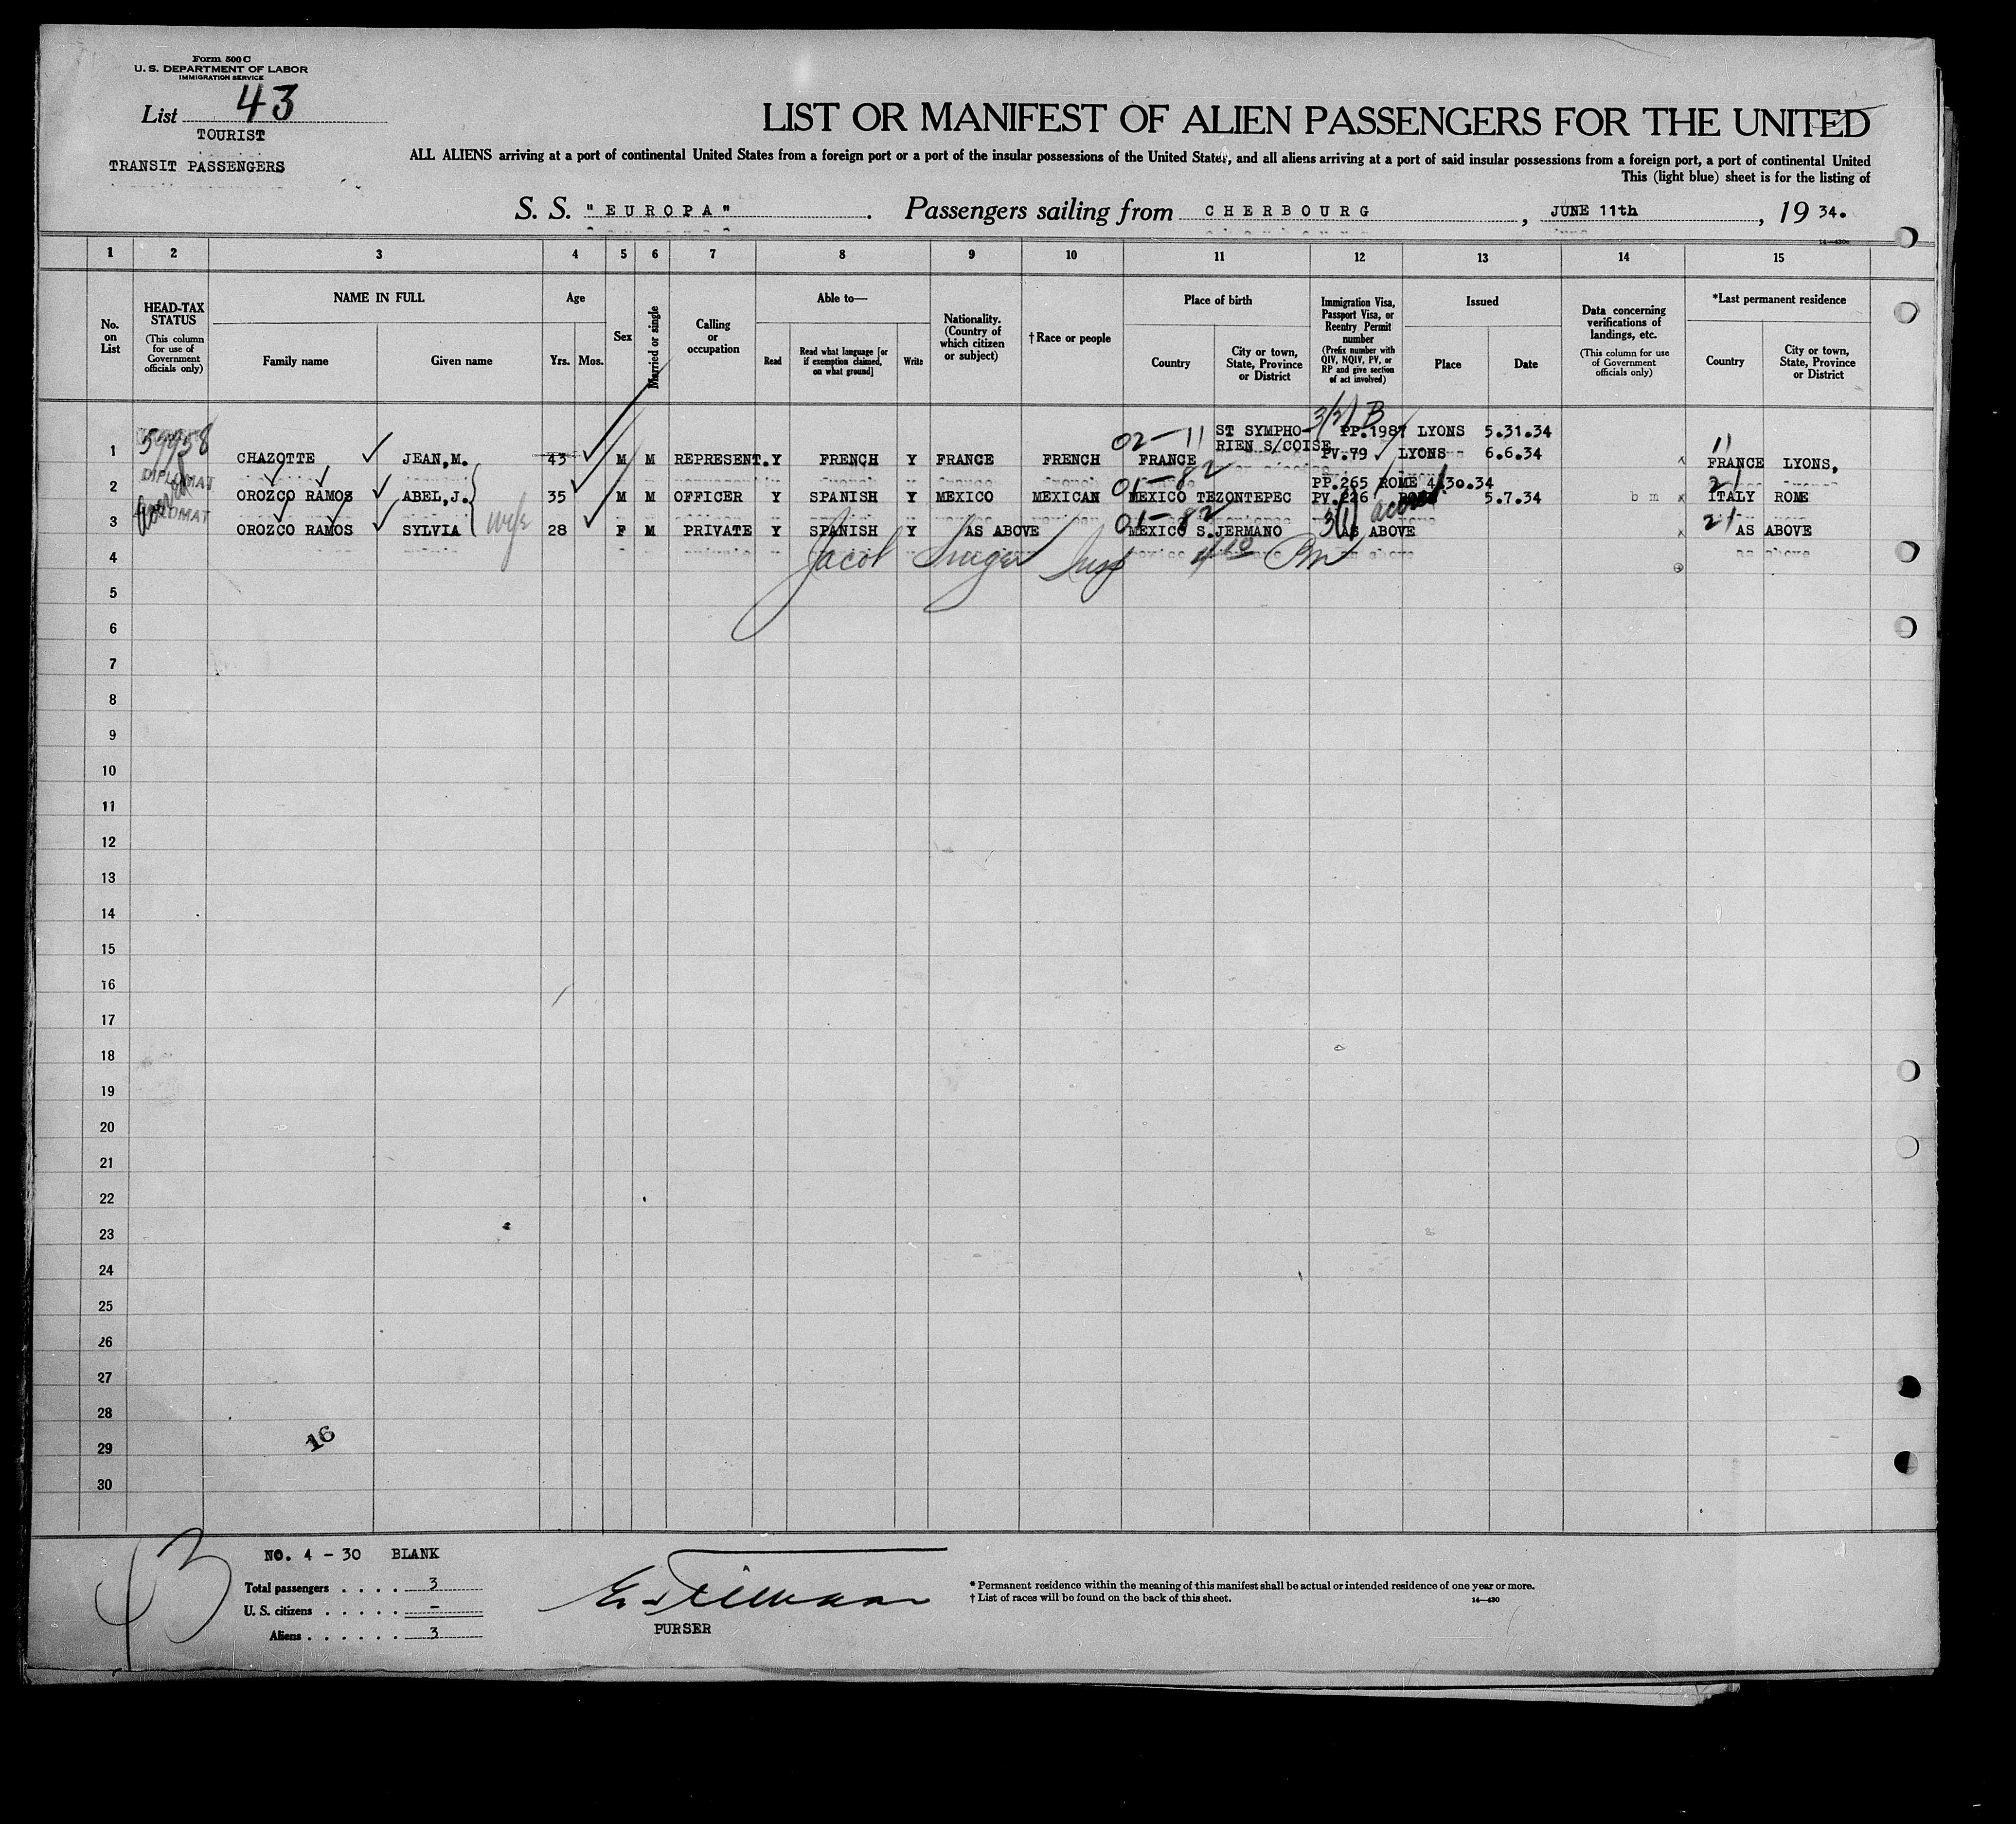 Form 500 C
U. S. DEPARTMENT OF LABOR
IMMIGRATION SERVICE
List 43
TOURIST
TRANSIT PASSENGERS
LIST OR MANIFEST OF ALIEN PASSENGERS FOR THE UNITED
ALL ALIENS arriving at a port of continental United States from a foreign port or a port of the insular possessions of the United States, and all aliens arriving at a port of said insular possessions from a foreign port, a port of continental United
This (light blue) sheet is for the listing of
S. S. "EUROPA". Passengers sailing from CHERBOURG, JUNE 11th, 19 34.
14—430
1 2 3 4 5 6 7 8 9 10 11 12 13 14 15
No. on List
HEAD-TAX STATUS
(This column for use of Government officials only)
NAME IN FULL
Family name
Given name
Age
Yrs. Mos.
Sex
Married or single
Calling or occupation
Able to—
Read
Read what language [or if exemption claimed, on what ground]
Write
Nationality. (Country of which citizen or subject)
†Race or people
Place of birth
Country
City or town, State, Province or District
Immigration Visa, Passport Visa, or Reentry Permit number
(Prefix number with QIV, NQIV, PV, or RP and give section of act involved)
Issued
Place
Date
Data concerning verifications of landings, etc.
(This column for use of Government officials only)
*Last permanent residence
Country
City or town, State, Province or District
3/21 B
59958 02-11 ST SYMPHO- PP.1987 LYONS 5.31.34 11
RIEN S/COISE
1 CHAZOTTE JEAN,M. 43 M M REPRESENT. Y FRENCH Y FRANCE FRENCH FRANCE PV.79 LYONS 6.6.34 FRANCE LYONS,
DIPLOMAT 01-82 PP.265 ROME 4.30.34 21
2 OROZCO RAMOS ABEL,J. 35 M M OFFICER Y SPANISH Y MEXICO MEXICAN MEXICO TEZONTEPEC PV.226 5.7.34 b m x ITALY ROME
DIPLOMAT wife 01-82 3(1) 21
3 OROZCO RAMOS SYLVIA 28 F M PRIVATE Y SPANISH Y AS ABOVE MEXICO S.JERMANO AS ABOVE x AS ABOVE
4 Jacob Insp
5
6
7
8
9
10
11
12
13
14
15
16
17
18
19
20
21
22
23
24
25
26
27
28
16
29
30
3
NO. 4 - 30 BLANK
Total passengers . . . . 3
U. S. citizens . . . . . -
Aliens . . . . . . 3
PURSER
* Permanent residence within the meaning of this manifest shall be actual or intended residence of one year or more.
† List of races will be found on the back of this sheet.
14—430